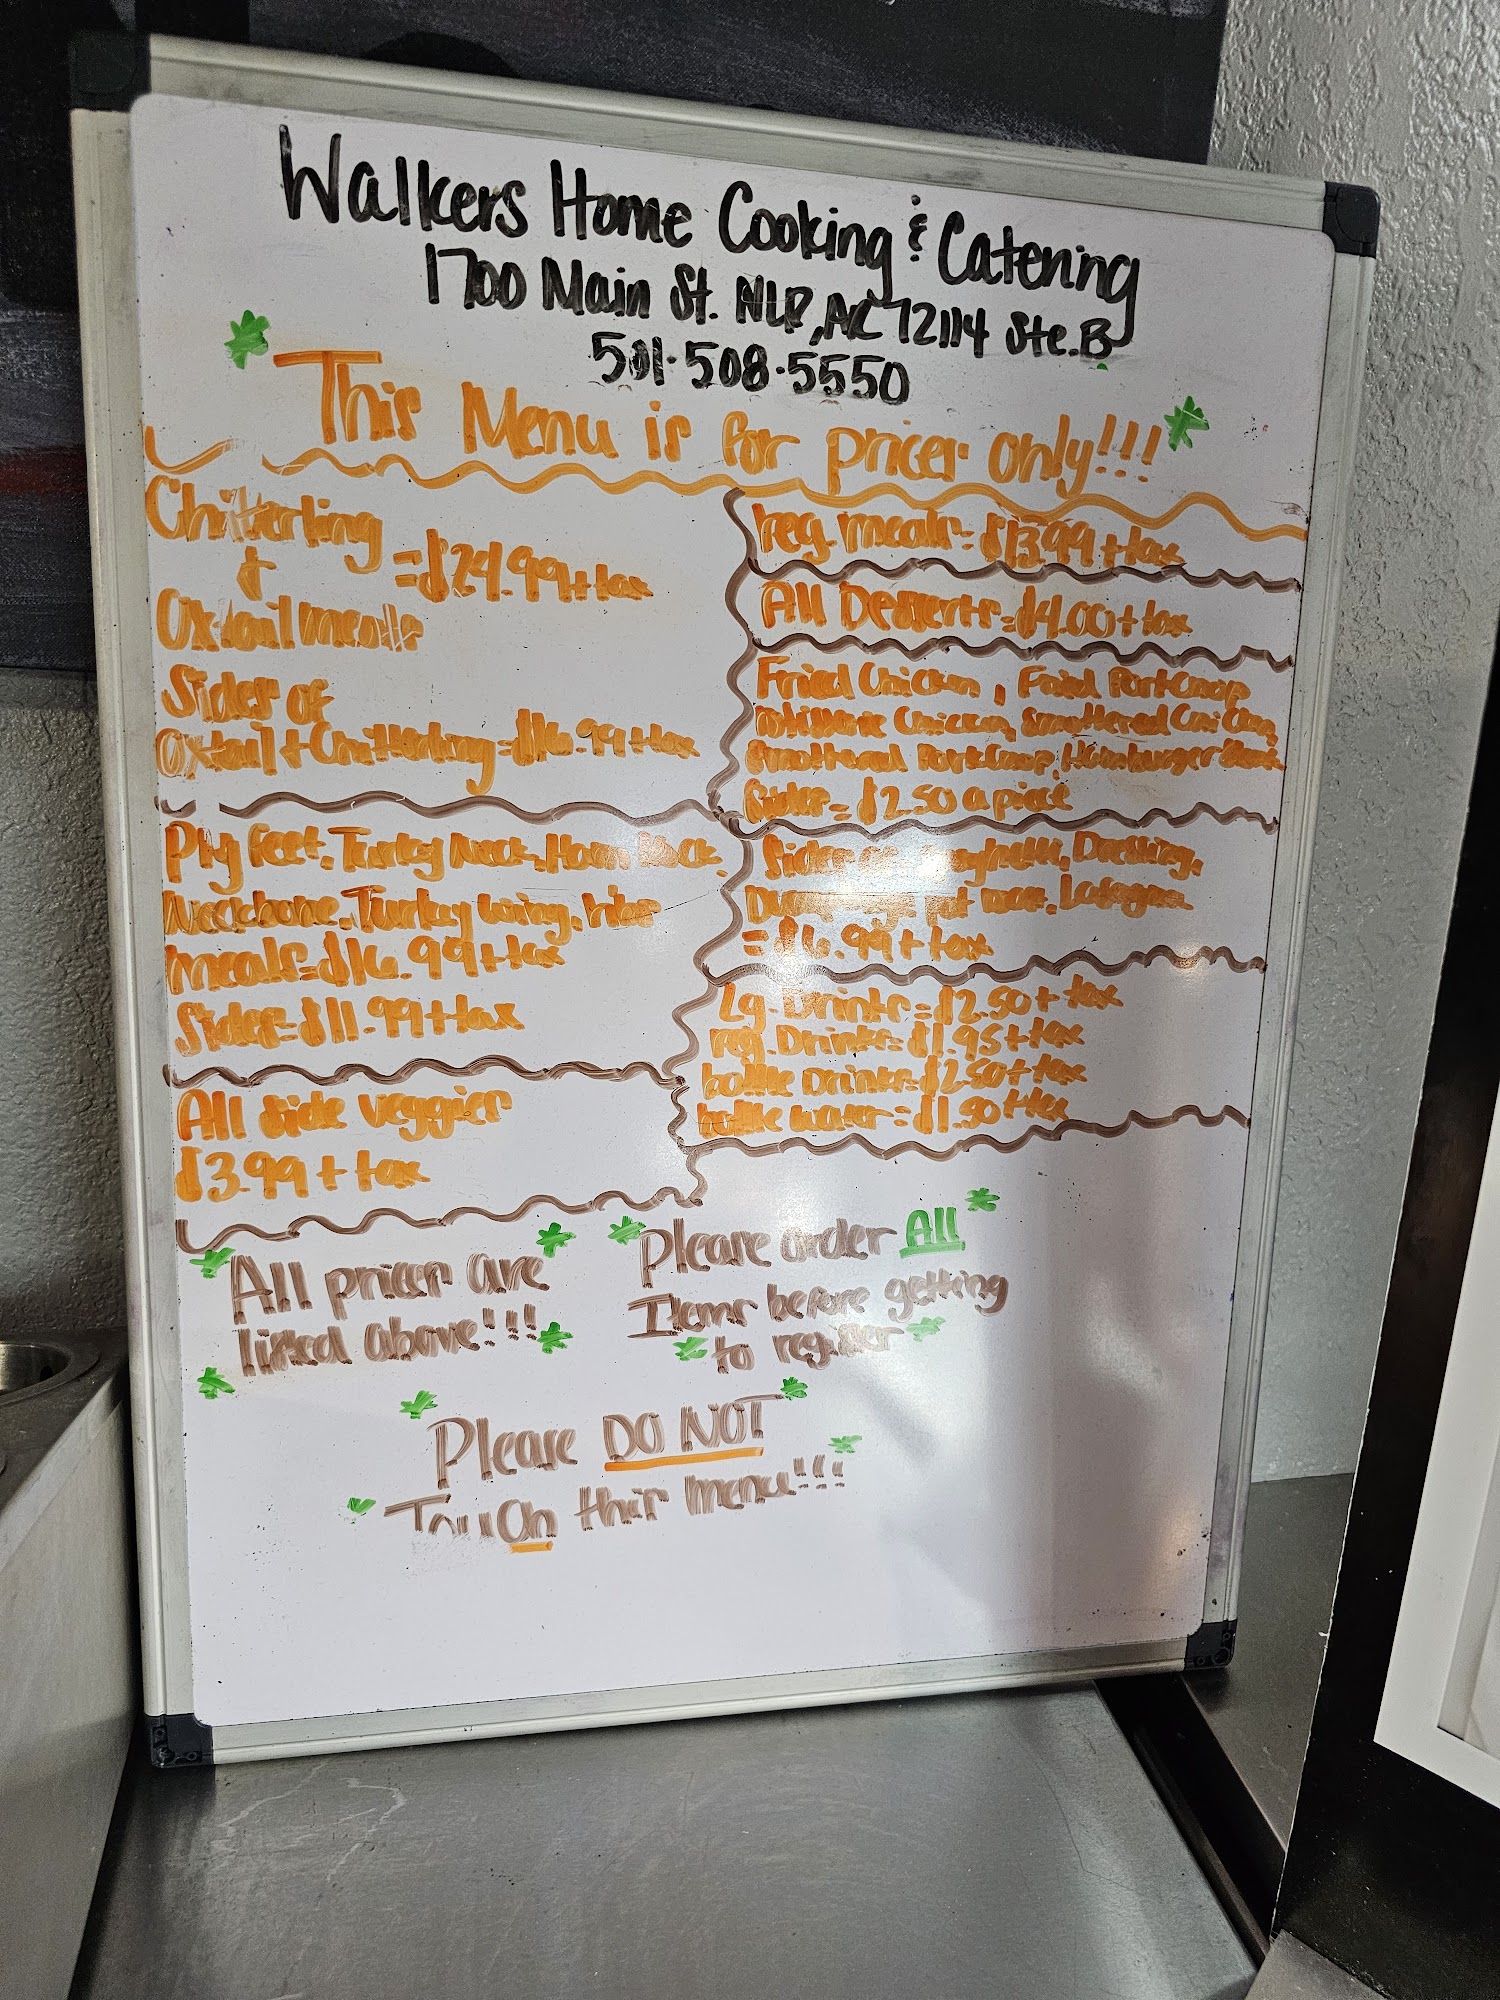 Walkers Home Cooking & Catering
1700 Main St. NLR, AR 72114 Ste. B
501-508-5550
This Menu is for prices only!!!
Chitterling
+ =$24.99+tax
Oxtail meals
Sides of
Oxtail + Chitterling = $16.99+tax
Pig feet, Turkey Neck, Ham Hock,
Neckbone, Turkey Wing,
meals=$16.99+tax
Sides=$11.99+tax
All side veggies
$3.99 + tax
reg. meals=$13.99+tax
All Desserts=$4.00+tax
Fried Chicken, Fried PorkChop
Chicken, Smothered Chicken,
Smothered PorkChop, Hamburger Steak
Sides= $2.50 a piece
Sides of Spaghetti, Dressing,
pot roast, Lasagna
= $6.99 + tax
Lg. Drinks=$2.50+tax
reg. Drinks=$1.95+tax
bottle Drinks=$2.50+tax
bottle water=$1.50+tax
All prices are
listed above!!!
Please order All
Items before getting
to register
Please DO NOT
Touch this menu!!!